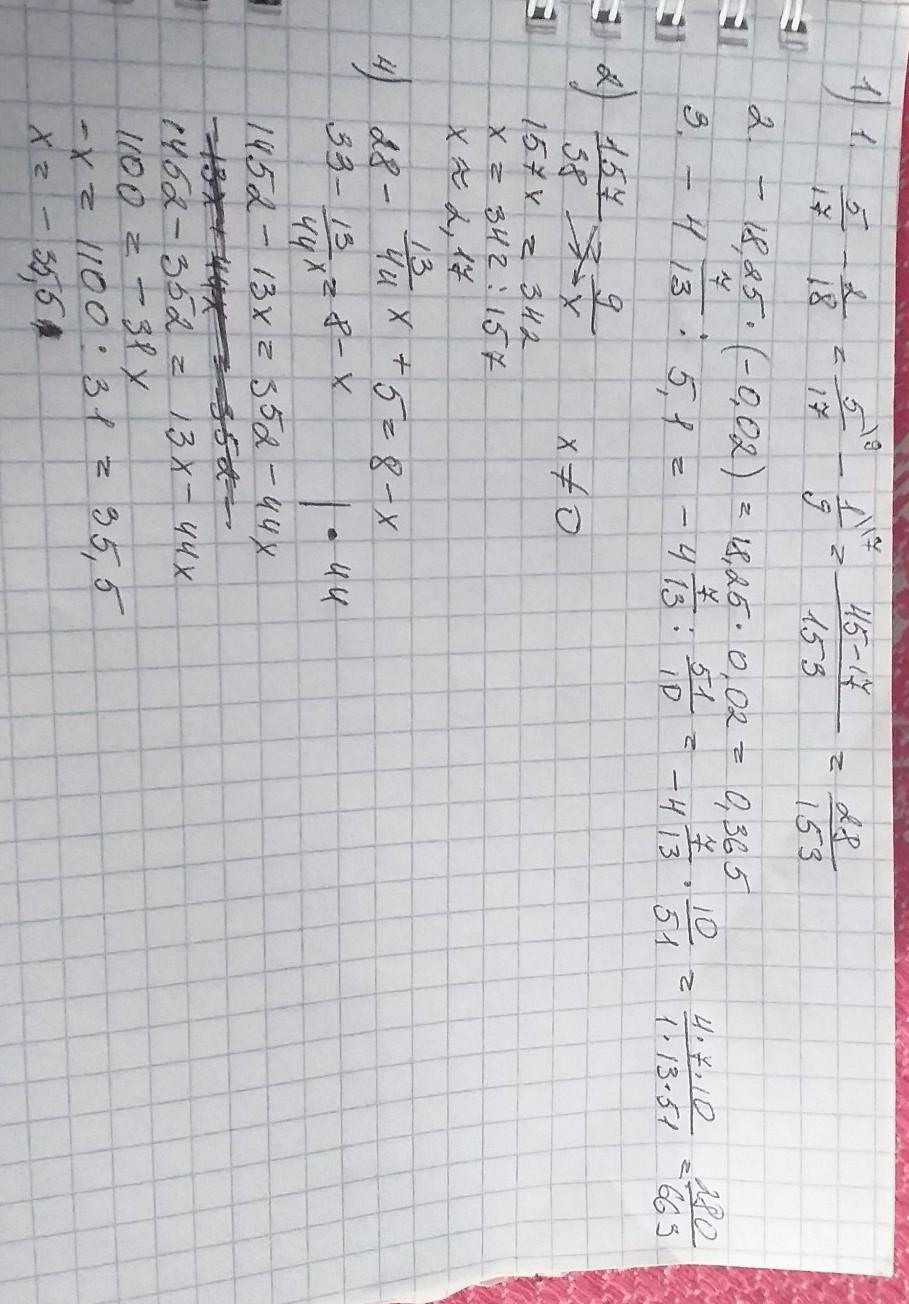 1) 1. 5/17 - 2/18 = 5/17 \9 - 1/9 \17 = 45-17/153 = 28/153
2. - 18,25 · (-0,02) = 18,25 · 0,02 = 0,365
3. - 4 7/13 : 5,1 = - 4 7/13 : 51/10 = - 4 7/13 · 10/51 = 4·7·10/1·13·51 = 280/663
2) 157/38 = 9/x x ≠ 0
157x = 342
x = 342 : 157
x ≈ 2,17
4) 28 - 13/44 x + 5 = 8 - x
33 - 13/44 x = 8 - x | · 44
1452 - 13x = 352 - 44x
-13x + 44x = 352 -
1452 - 352 = 13x - 44x
1100 = - 31x
-x = 1100 : 31 = 35,5
x = - 35,5